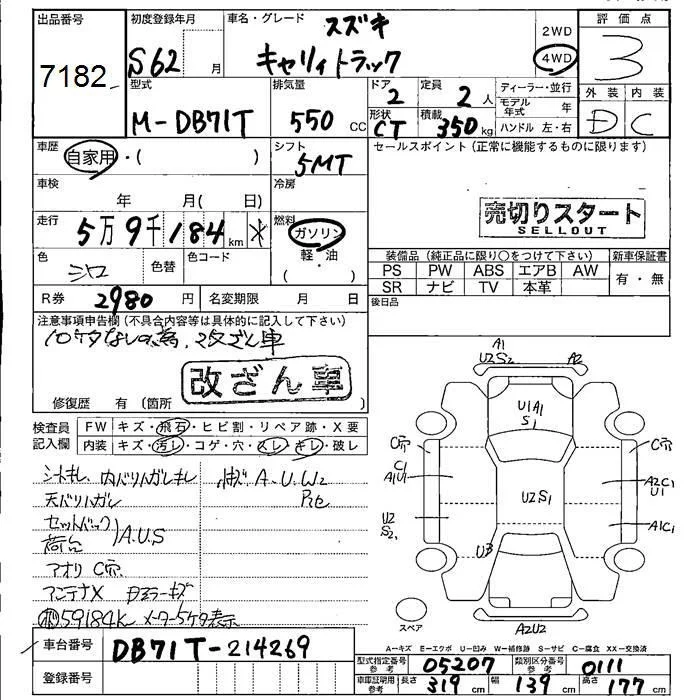 出品番号
7182
初度登録年月
S62 月
車名・グレード
スズキ
キャリイトラック
2WD
4WD
評価点
3
外装 内装
D C
型式
M-DB71T
排気量
550 CC
ドア
2
形状
CT
定員
2 人
積載
350 kg
ディーラー・並行
モデル年式 年
ハンドル 左・右
車歴
自家用・( )
シフト
5MT
セールスポイント(正常に機能するものに限ります)
車検
年 月( 日)
冷房
売切りスタート
SELLOUT
走行
5万9千184 km ※
燃料
ガソリン
軽・油
( )
色
シロ
色替
色コード
装備品(純正品に限り○をつけて下さい)
新車保証書
PS PW ABS エアB AW
SR ナビ TV 本革
有・無
R券
2980 円
名変期限 月 日
後日品
注意事項申告欄(不具合内容等は具体的に記入して下さい)
10ケタなしの為、改ざん車
改ざん車
修復歴 有(箇所
検査員記入欄
FW キズ・飛石・ヒビ割・リペア跡・X要
内装 キズ・汚レ・コゲ・穴・スレ・キレ・破レ
シートキレ 内バリハガレキレ
天バリハガレ
A.U.W2
セットバック
荷台
A.U.S
アオリ C穴
アンテナX
59184K メーター5ケタ表示
A1
U2 S2
A2
U1A1
S1
C穴
C穴
C1
A1U1
A2C1
U1
U2S1
U2
S2
A1C1
U3
スペア
A2U2
A-キズ E-エクボ U-凹み W-補修跡 S-サビ C-腐食 XX-交換済
車台番号
DB71T-214269
登録番号
型式指定番号参考
05207
類別区分番号参考
0111
車庫証明用参考
長さ 319 cm
幅 139 cm
高さ 177 cm